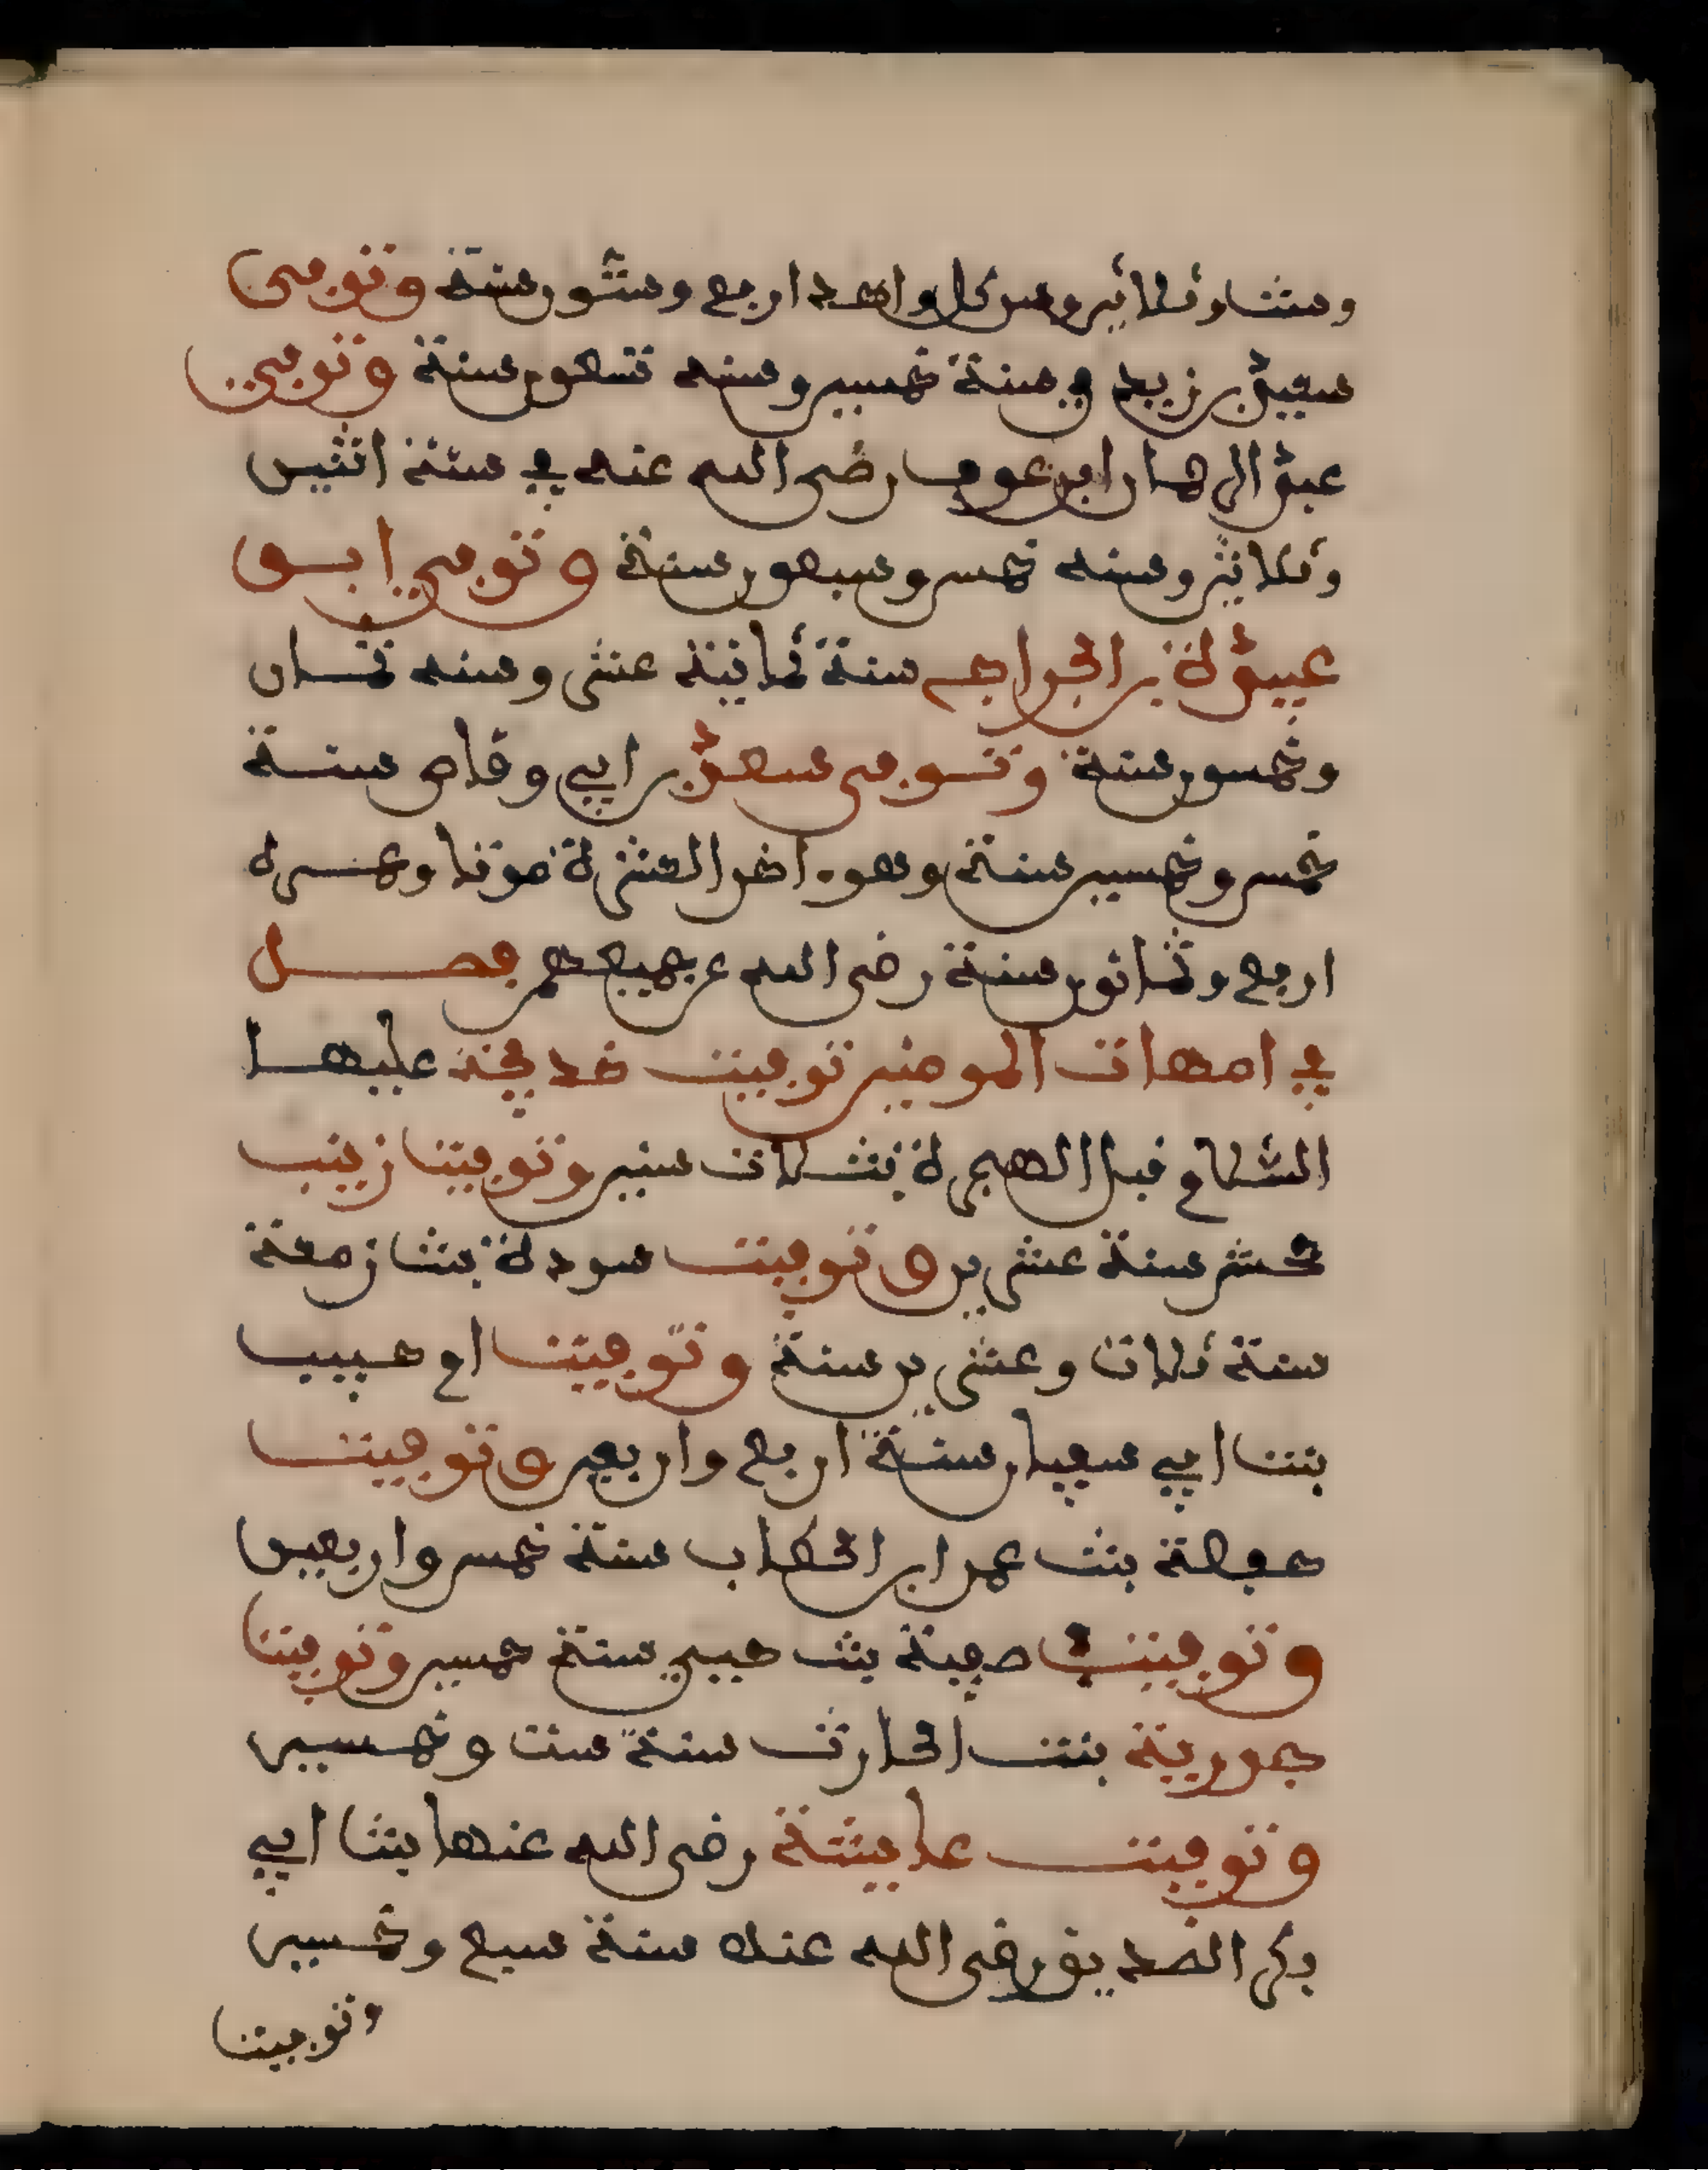 وست وثلاثين وسن كل واحد اربع وستون سنة وتوفى
سعيد بن زيد في سنة خمسين وسنه تسعون سنة وتوفي
عبد الرحمان ابن عوف رضى الله عنه في سنة اثنين
وثلاثين وسنه خمس وسبعون سنة وتوفي ابو
عبيدة بن الجراح سنة ثمانية عشر وسنه ثمان
وخمسون سنة وتوفى سعد بن ابي وقاص سنة
خمس وخمسين سنة وهو ءاخر العشرة موتا وعمره
اربع وثمانون سنة رضى الله عن جميعهم فصل
في امهات المومنين توفيت خديجة عليها
السلام قبل الهجرة بثلاث سنين وتوفيت زينب
جحش سنة عشرين وتوفيت سودة بنت زمعة
سنة ثلاث وعشرين سنة وتوفيت ام حبيب
بنت ابي سفيان سنة اربع واربعين وتوفيت
حفصة بنت عمر ابن الخطاب سنة خمس واربعين
وتوفيت صفية بنت حيي سنة خمسين وتوفيت
جورية بنت الحارث سنة ست وخمسين
وتوفيت عايشة رضى الله عنها بنت ابي
بكر الصديق رضى الله عنه سنة سبع وخمسين
وتوفيت